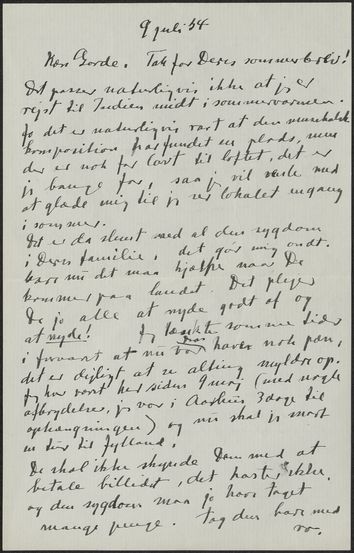 9 juli 54
Kære Gorde. Tak for Deres sommerbrev!
Det passer naturligvis ikke at jeg er
rejst til Indien midt i sommervarmen.
Jo det er naturligvis rart at den musikalske
komposition har fundet en plads, men
der er nok for lavt til loftet, det er
jeg bange for, saa jeg vil vente med
at glæde mig til jeg ser lokalet engang
i sommer.
Det er da slemt med al den sygdom
i Deres familie, det gør mig ondt.
bare nu det maa hjælpe naar De
kommer paa landet. Det plejer
De jo alle at nyde godt af og
at nyde! Jeg tænkte somme tider
i foraaret at nu var haven nok pæn,
det er dejligt at se alting myldre op.
Jeg har været her siden 9 maj (med nogle
afbrydelser, jeg var i Aarhus 3 dage til
ophængningen) og nu skal jeg snart
en tur til Jylland.
De skal ikke skynde Dem med at
betale billedet, det haster ikke.
og den sygdom maa jo have taget
mange penge. tag den bare med
ro.